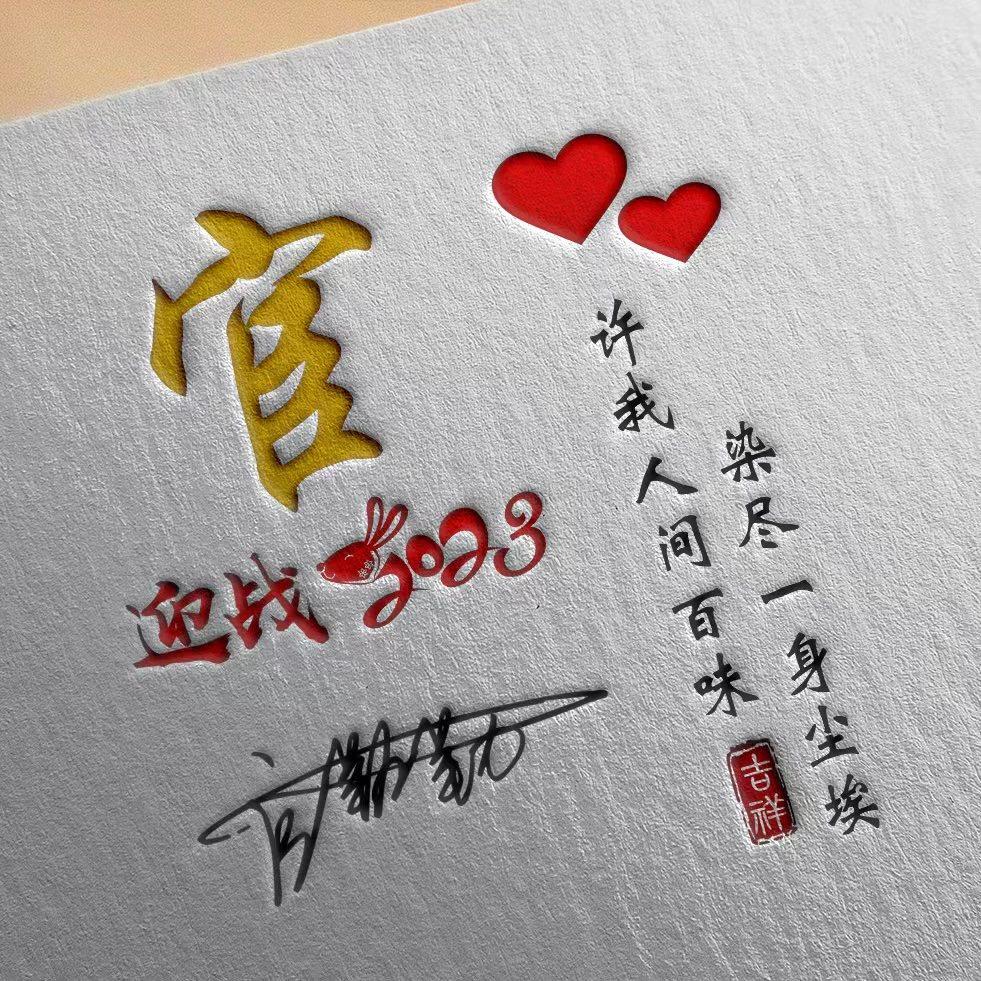 官
迎战2023
许我人间百味
染尽一身尘埃
吉祥